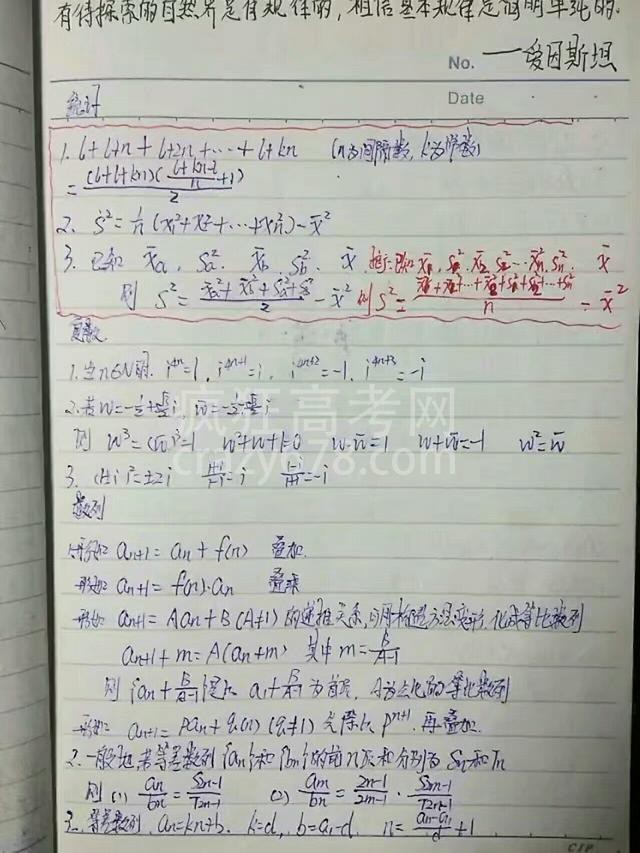 有待探索的自然界是有规律的,相信基本规律是简明单纯的.
——爱因斯坦
No.
Date
统计
1. b+b+n+b+2n+…+b+kn (n为间隔数, k为常数)
= (b+b+kn)(\frac{b+kn-b}{n}+1)/2
2. S²=1/n(x₁²+x₂²+…+xn²)-x̄²
3. 已知 x̄a, Sa², x̄b, Sb², x̄ 推广:已知x̄₁, S₁², x̄₂, S₂²…x̄n, Sn², x̄
则 S²=\frac{x̄a²+x̄b²+Sa²+Sb²}{2}-x̄² 则S²=\frac{x̄₁²+x̄₂²+…+x̄n²+S₁²+S₂²+…+Sn²}{n}-x̄²
复数
1. 当n∈N时, i⁴ⁿ=1, i⁴ⁿ⁺¹=i, i⁴ⁿ⁺²=-1, i⁴ⁿ⁺³=-i
2. 若w=-1/2+√3/2 i, w̄=-1/2-√3/2 i
则 w³=(w̄)³=1 w²+w+1=0 w·w̄=1 w+w̄=-1 w²=w̄
3. (1±i)²=±2i \frac{1+i}{1-i}=i \frac{1-i}{1+i}=-i
数列
1. 形如 an+1=an+f(n) 叠加.
形如 an+1=f(n)·an 叠乘
形如 an+1=Aan+B(A≠1)的递推关系,可用构造方法变形,化成等比数列
an+1+m=A(an+m) 其中m=\frac{B}{A-1}
则{an+\frac{B}{A-1}}是以a₁+\frac{B}{A-1}为首项, A为公比的等比数列
形如 an+1=Pan+q(n)(q≠1)先除以Pⁿ⁺¹,再叠加.
2. 一般地,若等差数列{an}和{bn}的前n项和分别为Sn和Tn
则 (1) \frac{an}{bn}=\frac{S2n-1}{T2n-1} (2) \frac{am}{bn}=\frac{2n-1}{2m-1}·\frac{S2m-1}{T2n-1}
3. 等差数列, an=kn+b. k=d, b=a₁-d. n=\frac{an-a₁}{d}+1
疯狂高考网
crazy678.com